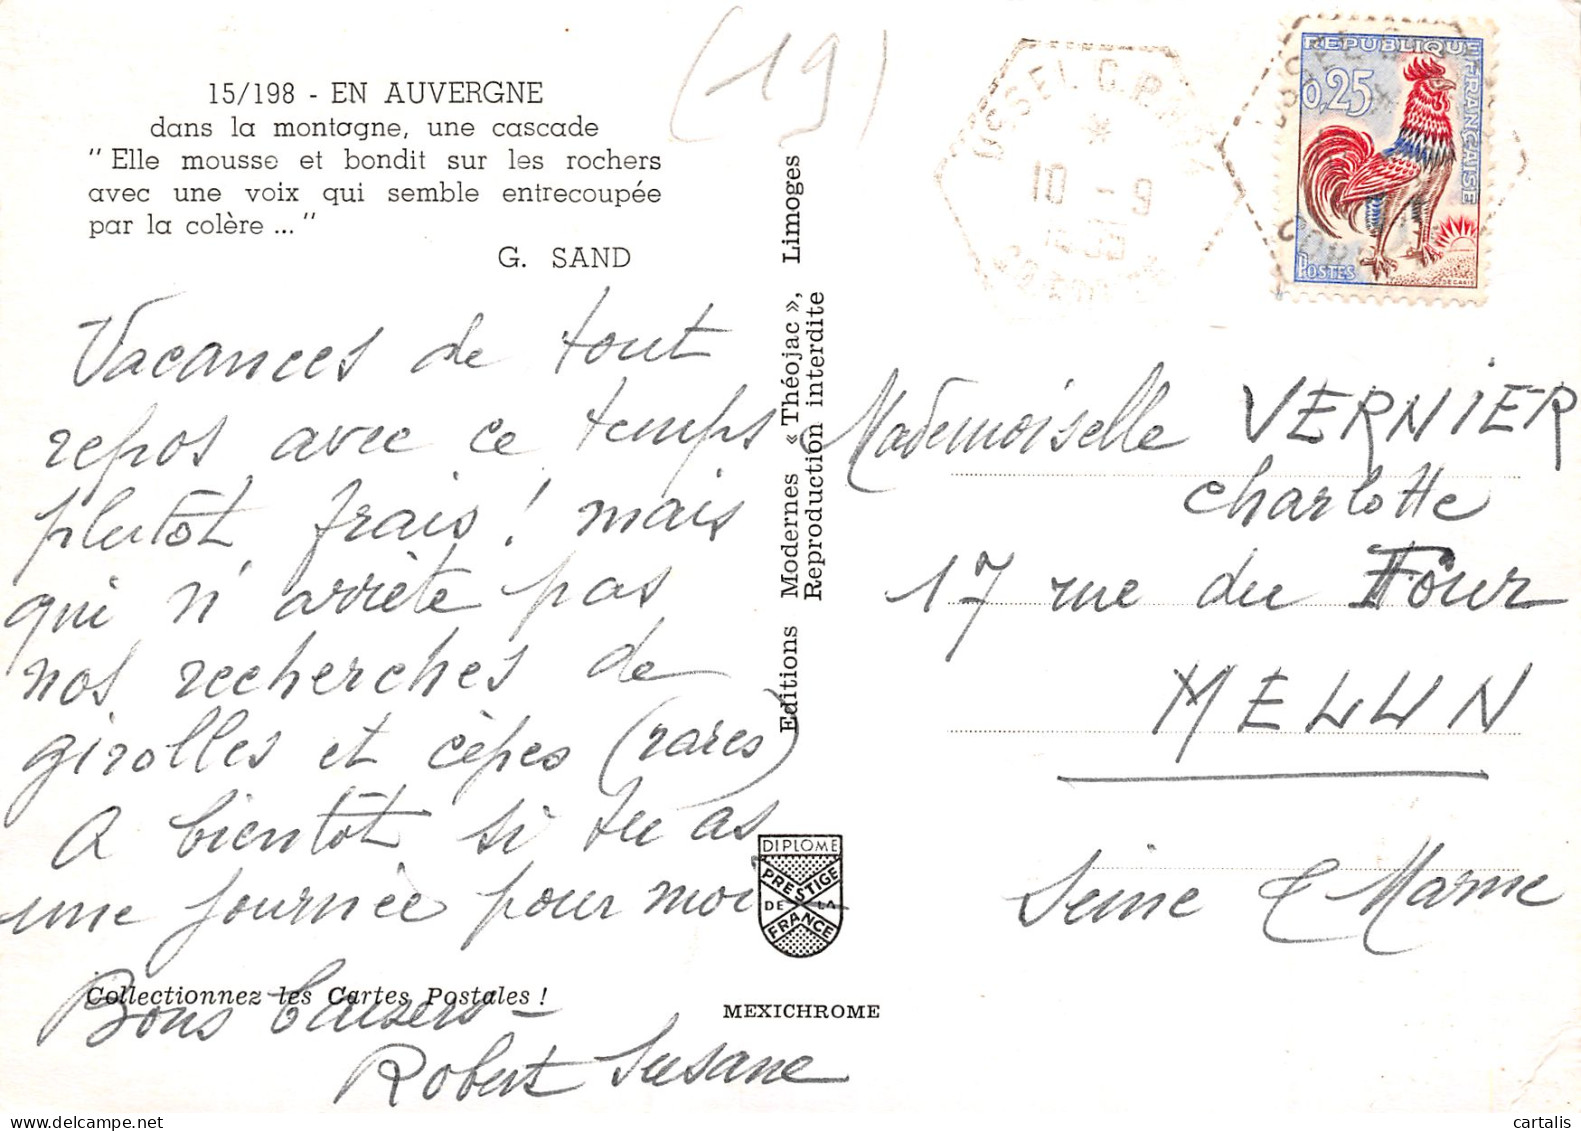 (19)
15/198 - EN AUVERGNE
dans la montagne, une cascade
" Elle mousse et bondit sur les rochers
avec une voix qui semble entrecoupée
par la colère ... "
G. SAND
Vacances de tout
repos avec ce temps
plutôt frais ! mais
qui n'arrête pas
nos recherches de
girolles et cèpes (rares)
A bientôt si tu as
une journée pour moi
Collectionnez les Cartes Postales !
Bons baisers -
Robert Susane
Editions Modernes « Théojac », Limoges
Reproduction interdite
DIPLOME
PRESTIGE
DE LA
FRANCE
MEXICHROME
USSEL
10 - 9
REPUBLIQUE
FRANÇAISE
0,25
POSTES
DECARIS
Mademoiselle VERNIER
Charlotte
17 rue du Four
MELUN
Seine & Marne
cartalis